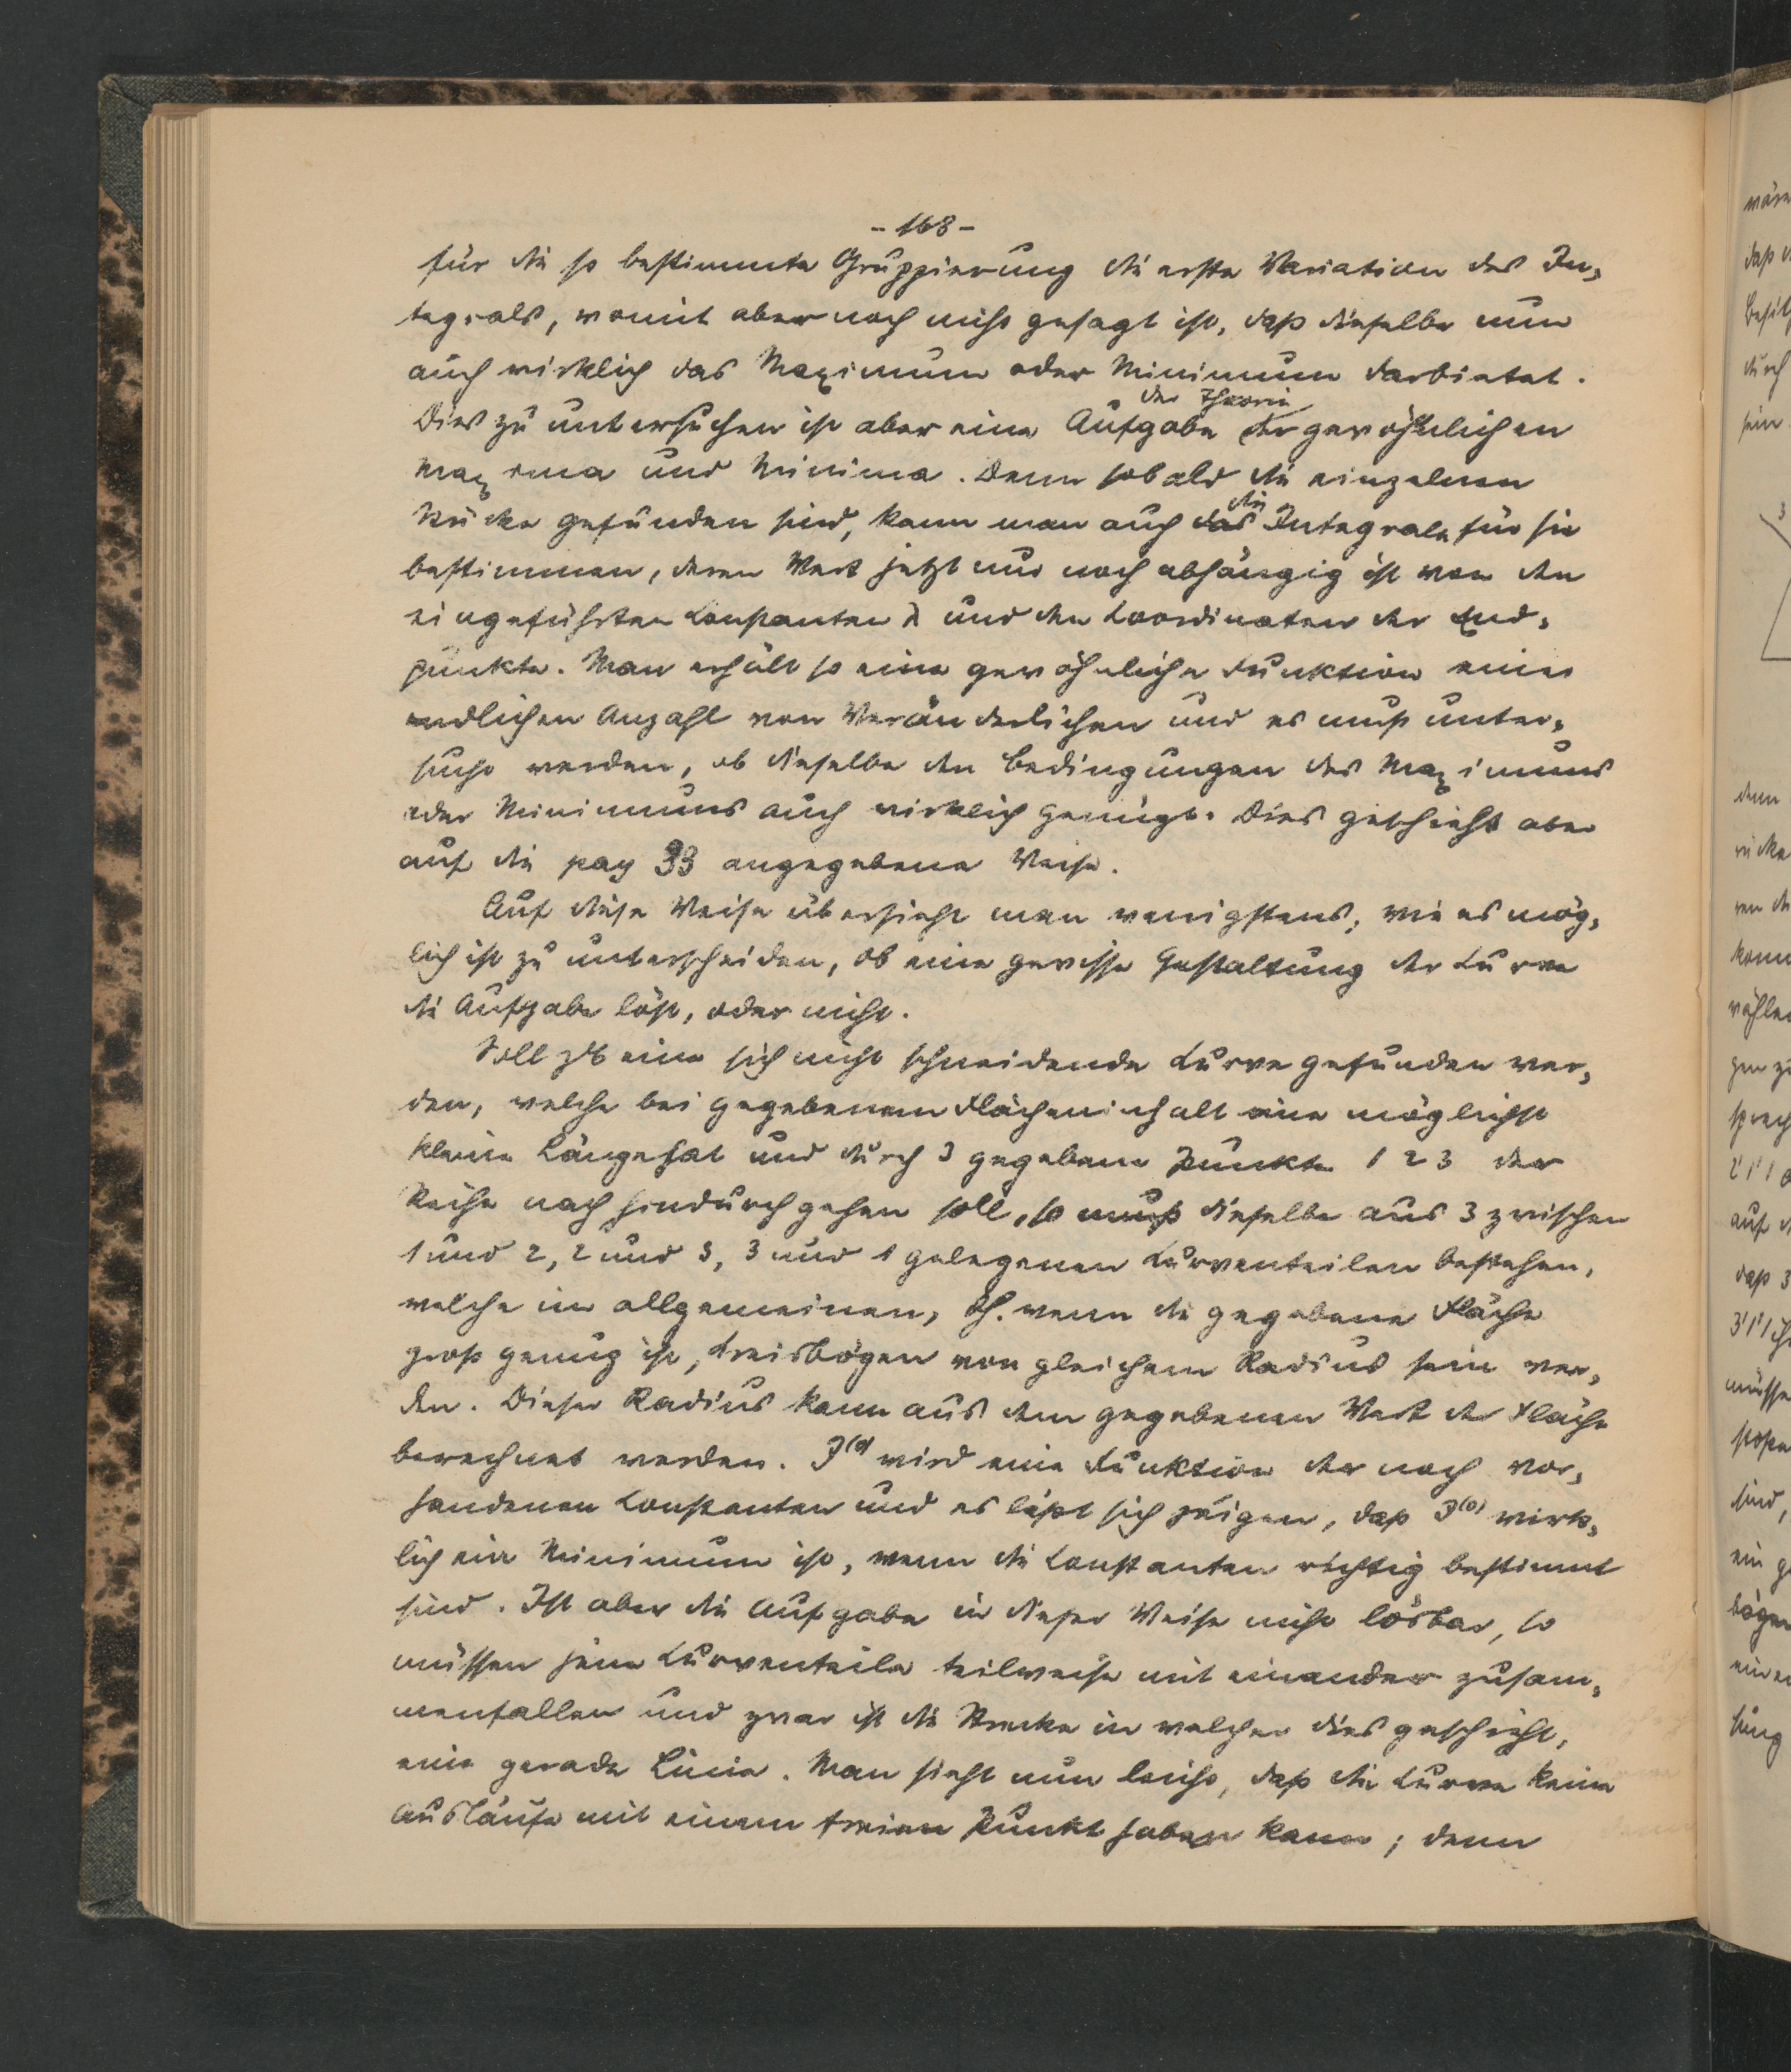 - 168 -
für die so bestimmte Gruppierung die erste Variation des In-
tegrals, womit aber noch nicht gesagt ist, daß dieselbe nun
auch wirklich das Maximum oder Minimum darbietet.
der Theorie
Dies zu untersuchen ist aber eine Aufgabe der gewöhnlichen
Maxima und Minima. Denn sobald die einzelnen
die
Stücke gefunden sind, kann man auch das Integrale für sie
bestimmen, deren Wert jetzt nur noch abhängig ist von den
eingeführten Constanten λ und den Coordinaten der End-
punkte. Man erhält so eine gewöhnliche Funktion einer
endlichen Anzahl von Veränderlichen und es muß unter-
sucht werden, ob dieselbe den Bedingungen des Maximums
oder Minimums auch wirklich genügt. Dies geschieht aber
auf die pag 33 angegebene Weise.
Auf diese Weise übersieht man wenigstens, wie es mög-
lich ist zu unterscheiden, ob eine gewisse Gestaltung der Curve
die Aufgabe löst, oder nicht.
Soll zB eine sich nicht schneidende Curve gefunden wer-
den, welche bei gegebenem Flächeninhalt eine möglichst
kleine Länge hat und durch 3 gegebene Punkte 1 2 3 der
Reihe nach hindurchgehen soll, so muß dieselbe aus 3 zwischen
1 und 2, 2 und 3, 3 und 1 gelegenen Curventeilen bestehen,
welche im allgemeinen, dh. wenn die gegebene Fläche
groß genug ist, Kreisbögen von gleichem Radius sein wer-
den. Dieser Radius kann aus dem gegebenen Wert der Fläche
berechnet werden. J⁽⁰⁾ wird eine Funktion der noch vor-
handenen Constanten und es läßt sich zeigen, daß J⁽⁰⁾ wirk-
lich ein Minimum ist, wenn die Constanten richtig bestimmt
sind. Ist aber die Aufgabe in dieser Weise nicht lösbar, so
müssen jene Curventeile teilweise mit einander zusam-
menfallen und zwar ist die Strecke in welcher dies geschieht,
eine gerade Linie. Man sieht nun leicht, daß die Curve keine
Ausläufe mit einem freien Punkt haben kann; denn